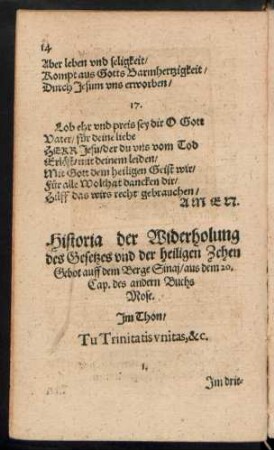 14
Aber leben vnd seligkeit/
Kompt aus Gotts Barmhertzigkeit/
Durch Jesum vns erworben/
17.
Lob ehr vnd preis sey dir O Gott
Vater/ für deine liebe
HERR Jesu/ der du vns vom Tod
Erlöst mit deinem leiden/
Mit Gott dem heiligen Geist wir/
Für alle Wolthat dancken dir/
Hülff das wirs recht gebrauchen/
AMEN.
Historia der Widerholung
des Gesetzes vnd der heiligen Zehen
Gebot auff dem Berge Sinaj/ aus dem 20.
Cap. des andern Buchs
Mose.
Jm Thon/
Tu Trinitatis vnitas, &c.
1.
Jm drit-